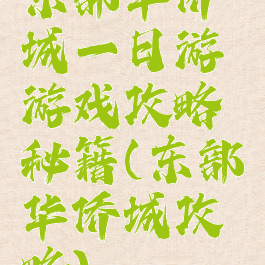 东部华侨
城一日游
游戏攻略
秘籍(东部
华侨城攻
略)